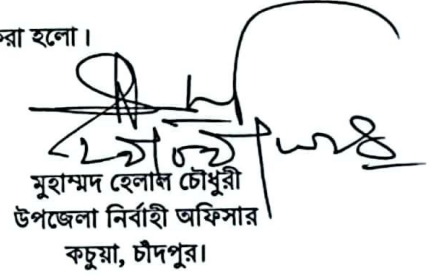 করা হলো।
মুহাম্মদ হেলাল চৌধুরী
উপজেলা নির্বাহী অফিসার
কচুয়া, চাঁদপুর।